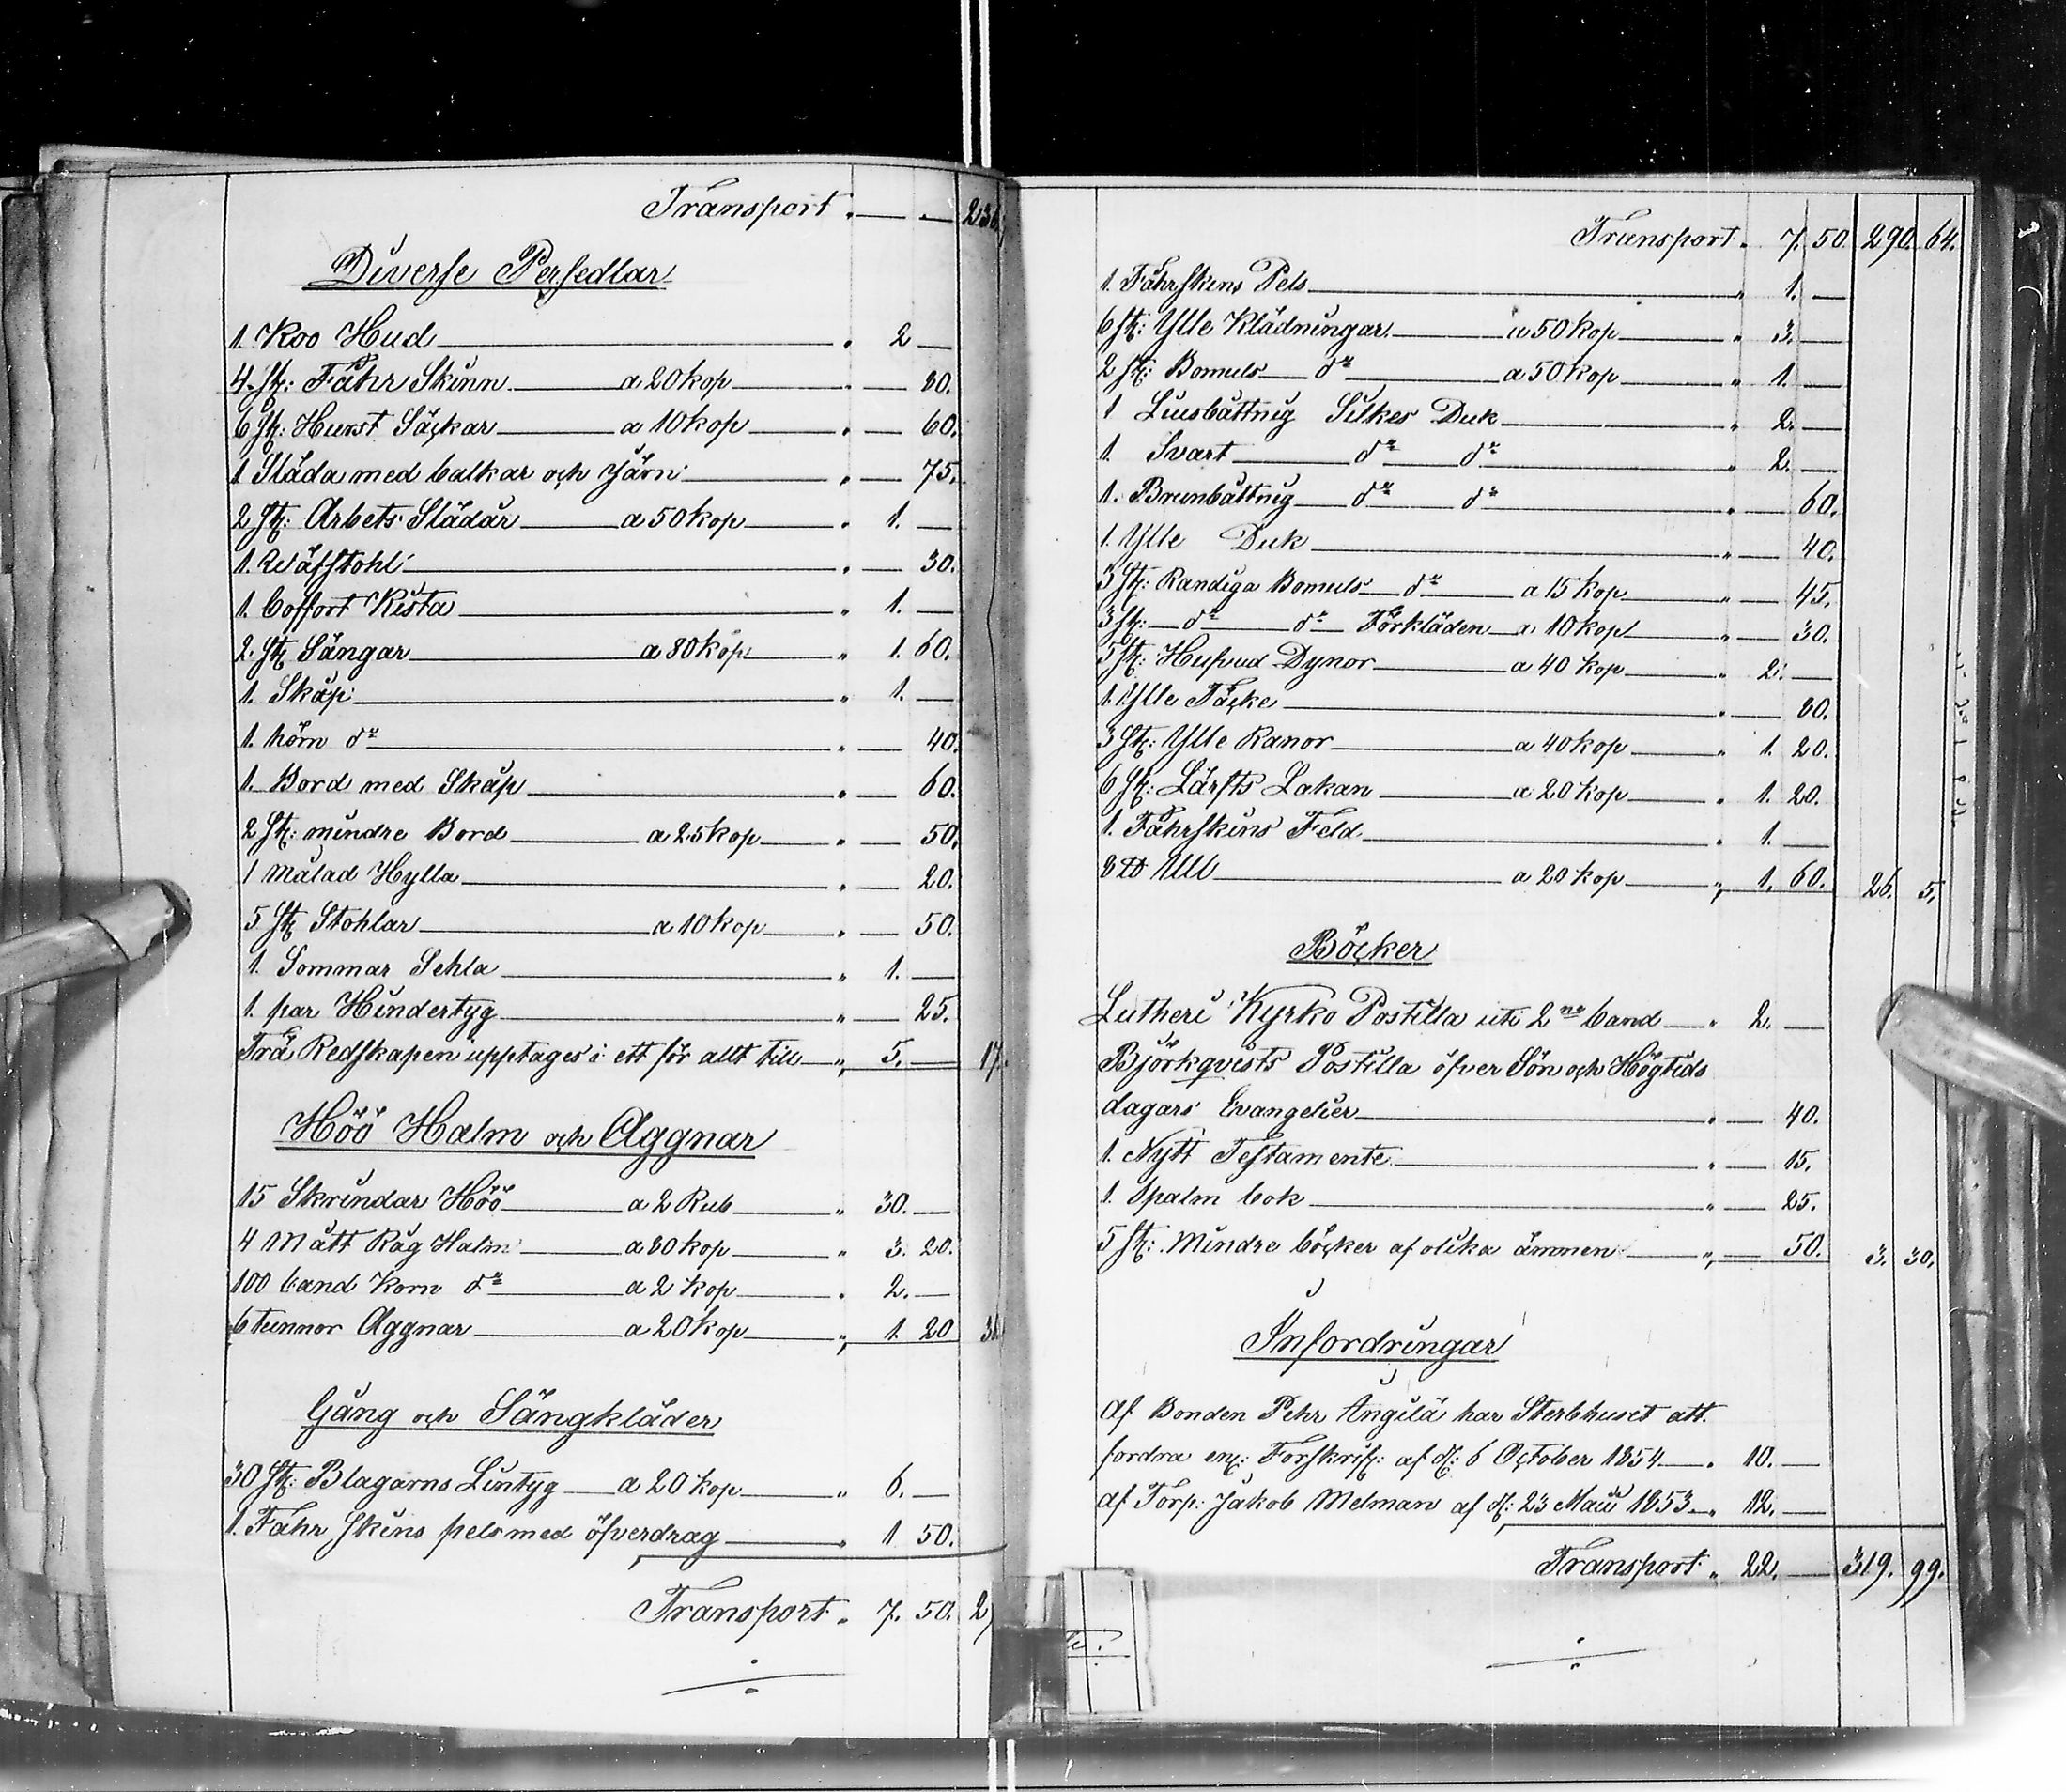 Transport „ — — 236
Diverse Persedlar
1. Koo Hud — „ 2 —
4. St: Fåhr Skinn — a 20 kop — „ — 80.
6 St: Hurst Säckar — a 10 kop — „ — 60.
1 Släda med balkar och Järn — „ — 75.
2 St: Arbets Slädar — a 50 kop — „ 1. —
1. Wäfstohl — „ — 30.
1. Coffort Kista — „ 1. —
2. St Sängar — a 80 kop — „ 1. 60.
1. Skåp — „ 1. —
1. hörn do — „ — 40.
1. Bord med Skåp — „ — 60.
2 St: mindre Bord — a 25 kop — „ — 50.
1 Målad Hylla — „ — 20.
5 St Stohlar — a 10 kop — „ — 50.
1. Sommar Sehla — „ 1. —
1. par Hindertyg — „ — 25.
Trä Redskapen upptages i ett för allt till — „ 5. — 17.
Höö Halm och Aggnar
15 Skrindar Höö — a 2 Rub — „ 30. —
4 Mått Råg Halm — a 80 kop — „ 3. 20.
100 band Korn do — a 2 kop — „ 2. —
6 tunnor Aggnar — a 20 kop — „ 1. 20 36
Gång och Sängkläder
30 St: Blagarns Lintyg — a 20 kop — „ 6. —
1. Fåhr Skins pels med öfverdrag — „ 1 50.
Transport „ 7. 50. 2
Transport „ 7. 50. 290. 64.
1. Fåhrskins Pels — „ 1. —
6 St: Ylle Klädningar — a 50 kop — „ 3. —
2 St: Bomuls — do — a 50 kop — „ 1. —
1 Liusbåttnig Silkes Duk — „ 2. —
1. Svart — do — do — „ 2. —
1. Brunbåttnig — do — do — „ — 60.
1. Ylle Duk — „ — 40.
3 St: Randiga Bomuls — do — a 15 kop — „ — 45.
3 St: — do — do — Förkläden — a 10 kop — „ — 30.
5 St: Hufvud Dynor — a 40 kop — „ 2. —
1. Ylle Täcke — „ — 80.
3 St: Ylle Ranor — a 40 kop — „ 1. 20.
6 St: Lärfts Lakan — a 20 kop — „ 1. 20.
1. Fåhrskins Feld — „ 1. —
8 ℔ Ull — a 20 kop — „ 1. 60. 26. 5.
Böcker
Lutheri Kyrko Postilla uti 2ne band — „ 2. —
Björkqvists Postilla öfver Sön och Högtids
dagars Evangelier — „ — 40.
1. Nytt Testamente — „ — 15.
1. Spalm bok — „ — 25.
5 St: Mindre böcker af olika ämnen — „ — 50. 3. 30.
Infordringar
af Bonden Pehr Angilä har Sterbhuset att
fordra enl: Förskrif: af d: 6 October 1854 — „ 10. —
af Torp: Jakob Melman af d: 23 Maii 1853 „ 12. —
Transport „ 22. — 319. 99.